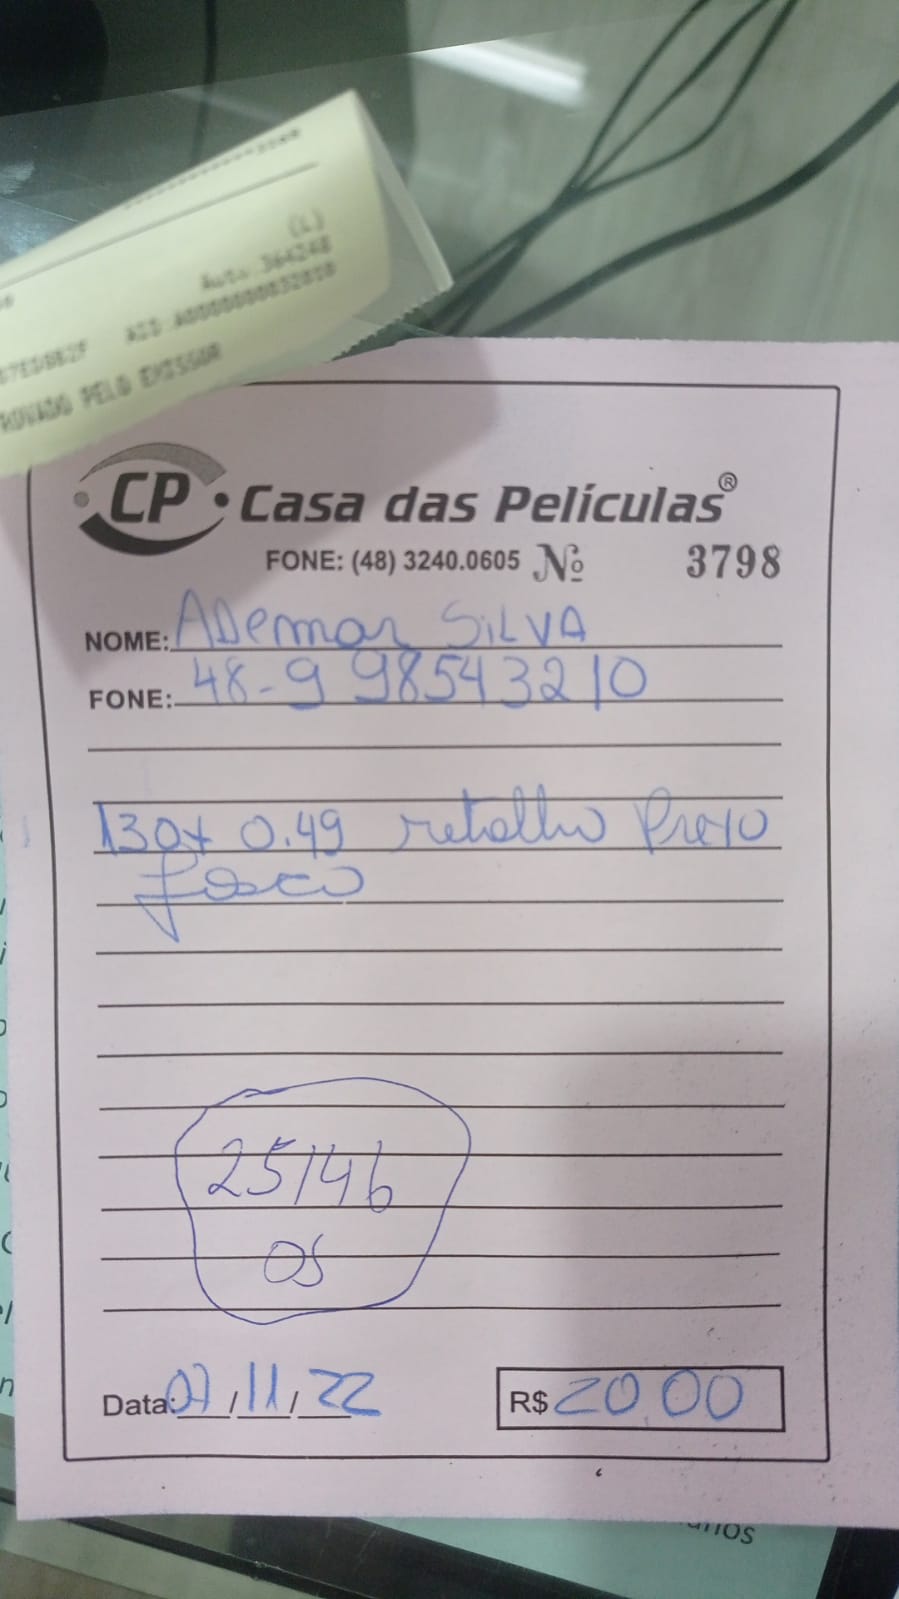 (L)
Auto: 364248
AID: A0000000032010
ROVADO PELO EMISSOR
CP Casa das Películas®
FONE: (48) 3240.0605 Nº 3798
NOME: Ademar SILVA
FONE: 48-9 98543210
130x 0.49 retalho Preto
fosco
25146
OS
Data: 07/11/22 R$ 20,00